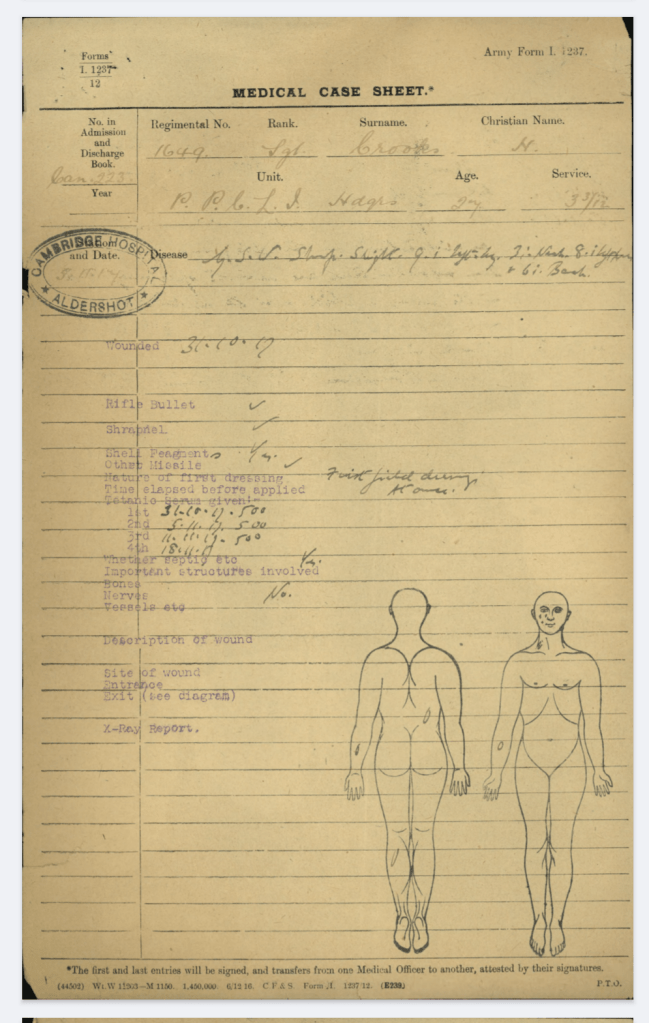 Forms
I. 1237
12
Army Form I. 1237.
MEDICAL CASE SHEET.*
No. in Admission and Discharge Book.
Can. 223
Year
Regimental No. Rank. Surname. Christian Name.
1649. Sgt. Crookes H.
Unit. Age. Service.
P. P. C. L. I. Hdqrs. 27 3 3/12
Station and Date.
CAMBRIDGE HOSPITAL
5.11.17
ALDERSHOT
Disease G. S. W. Neck.
& Back.
Wounded 31.10.17
Rifle Bullet ✓
Shrapnel ✓
Shell Fragments Yes.
Other Missile ✓
Nature of first dressing First field dressing
Time elapsed before applied
Tetanic Serum given:-
1st 31.10.17. 500
2nd 5.11.17. 500
3rd 11.11.17. 500
4th 18.11.17
Whether septic etc Yes.
Important structures involved
Bones
Nerves No.
Vessels etc
Description of wound
Site of wound
Entrance
Exit (see diagram)
X-Ray Report.
*The first and last entries will be signed, and transfers from one Medical Officer to another, attested by their signatures.
(44502) Wt. W 12503—M 1150. 1,450,000 6/12 16. C F & S Form I. 1237/12. (E239.)
P.T.O.